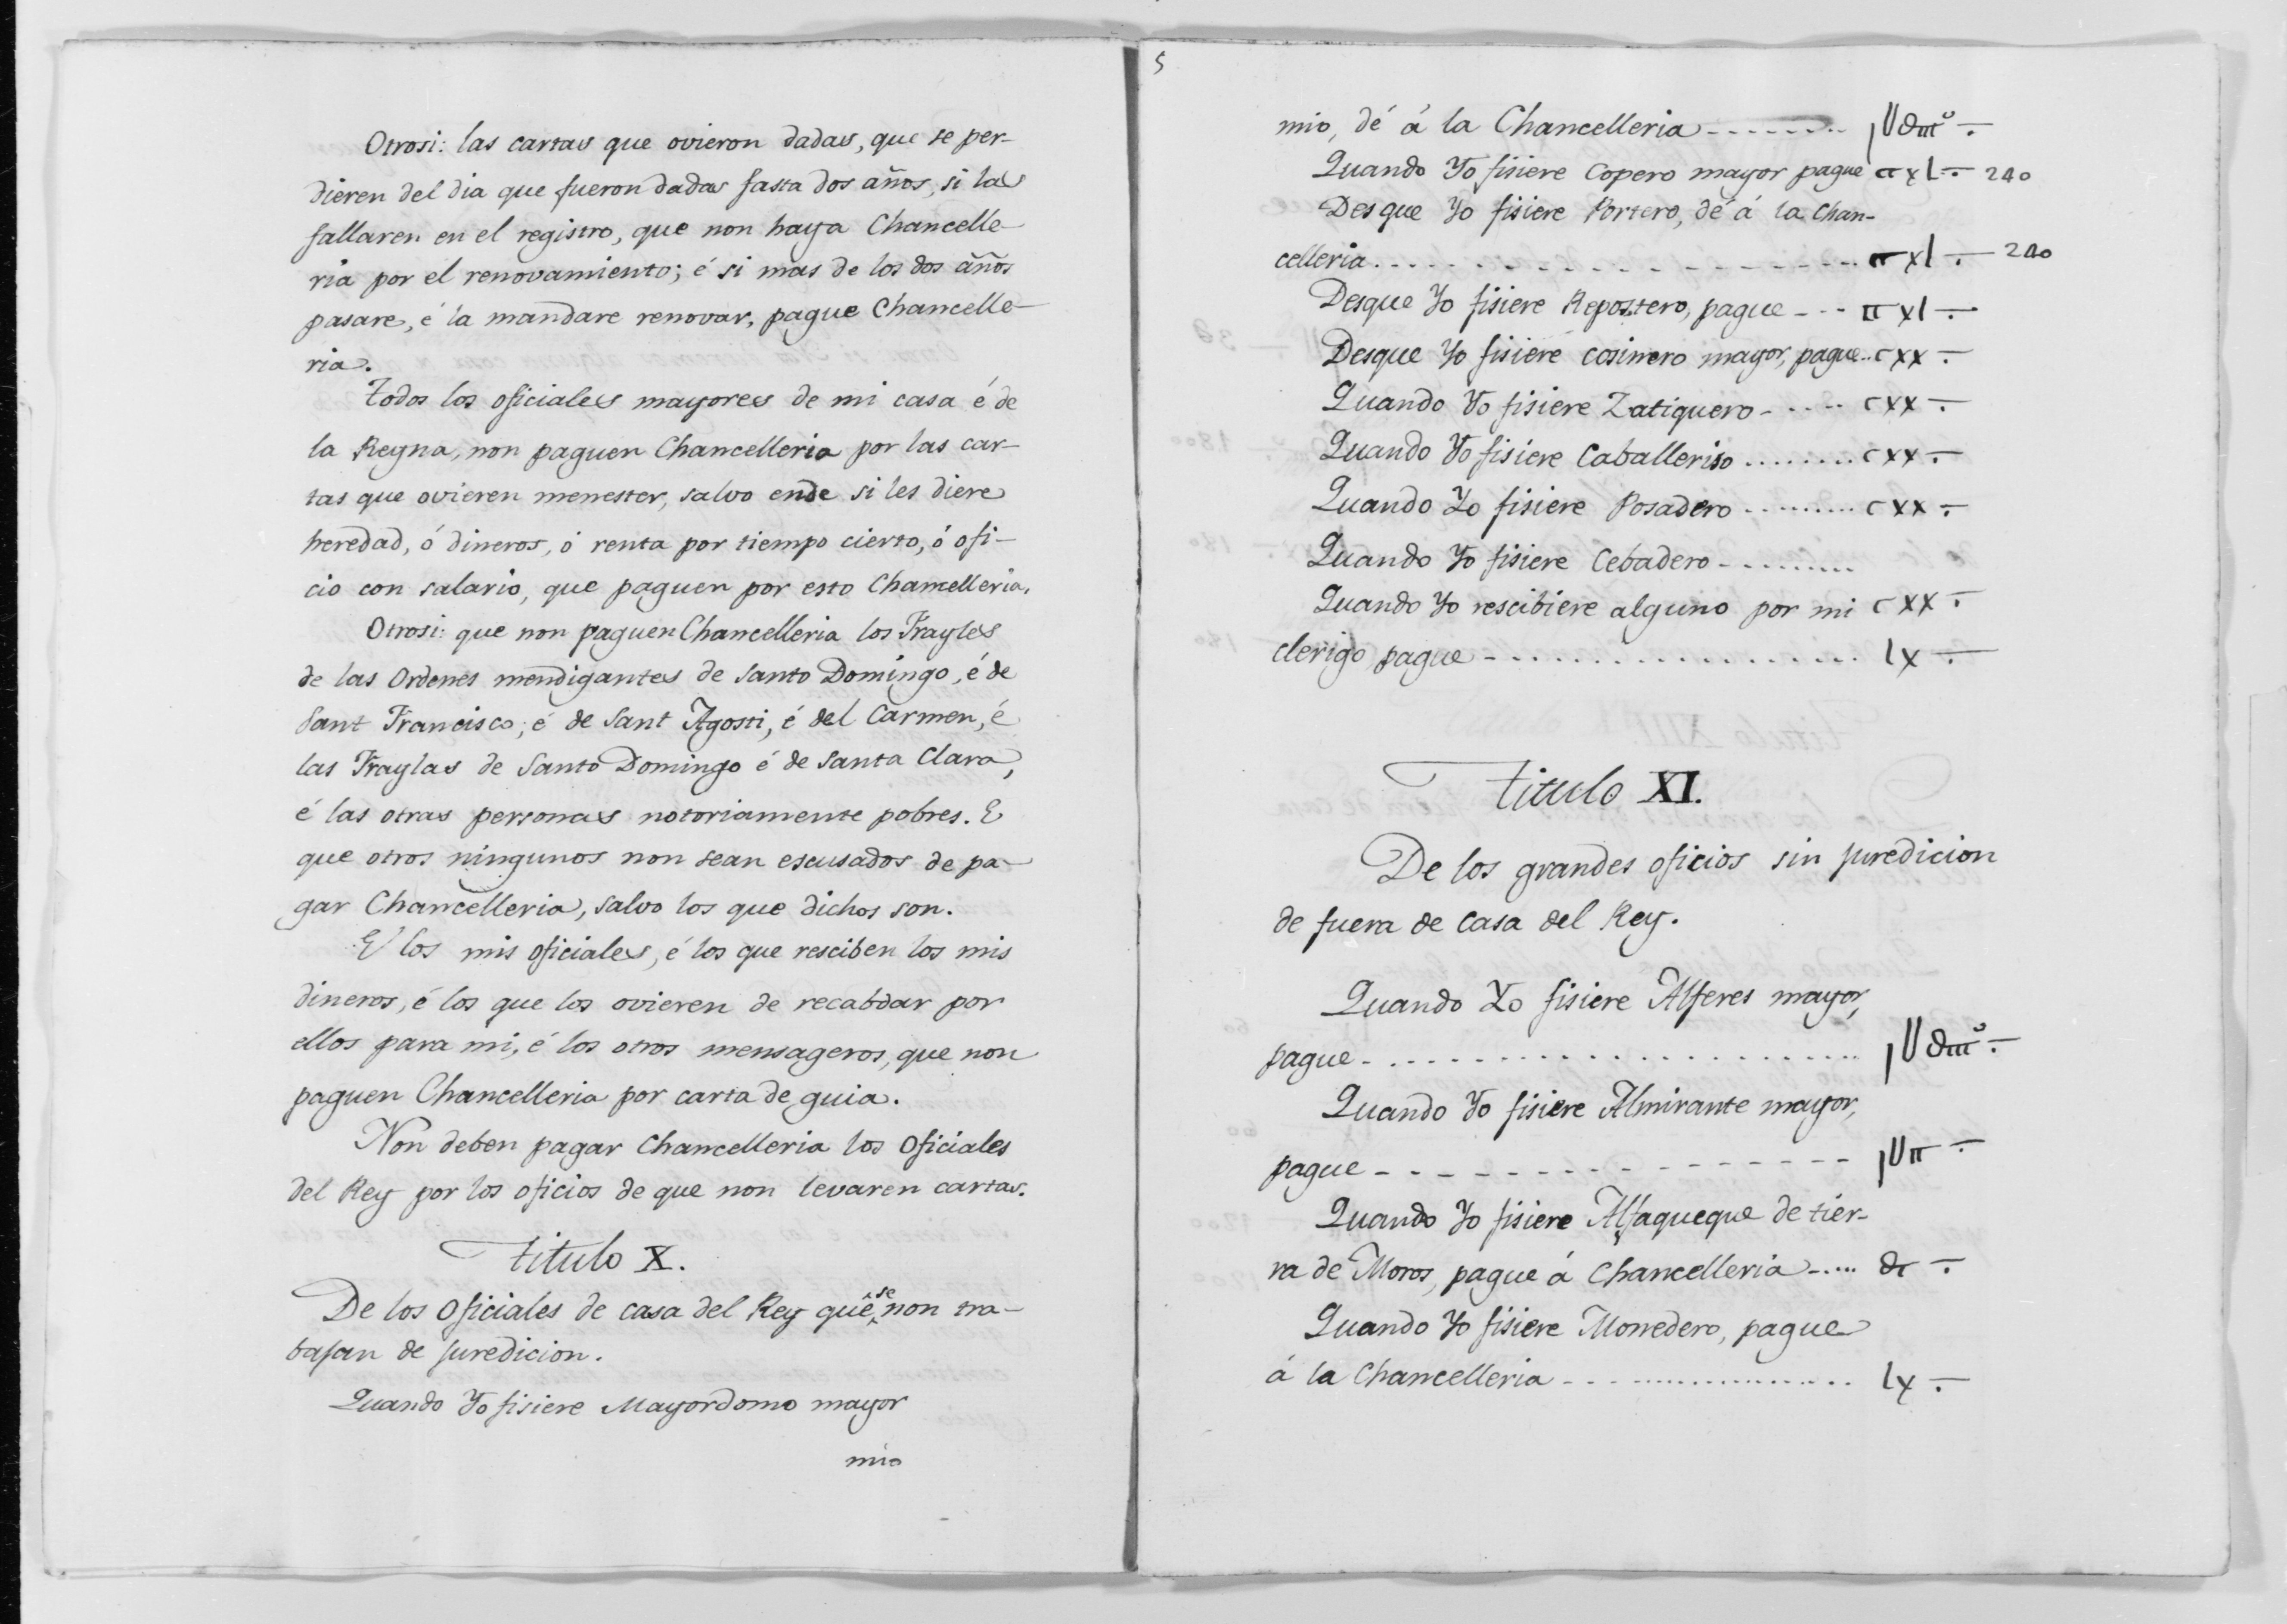 Otrosi: las cartas que ovieron dadas, que se per-
dieren del dia que fueron dadas fasta dos años, si las
fallaren en el registro, que non haya Chancelle-
ria por el renovamiento; é si mas de los dos años
pasare, é la mandare renovar, pague Chancelle-
ria.
Todos los oficiales mayores de mi casa é de
la Reyna, non paguen Chancelleria por las car-
tas que ovieren menester, salvo ende si les diere
heredad, ó dineros, ó renta por tiempo cierto, ó ofi-
cio con salario, que paguen por esto Chancelleria.
Otrosi: que non paguen Chancelleria los Frayles
de las Ordenes mendigantes de Santo Domingo, é de
Sant Francisco, é de Sant Agosti, é del Carmen, é
las Fraylas de Santo Domingo é de Santa Clara,
é las otras personas notoriamente pobres. E
que otros ningunos non sean escusados de pa-
gar Chancelleria, salvo los que dichos son.
E los mis oficiales, é los que resciben los mis
dineros, é los que los ovieren de recabdar por
ellos para mi, é los otros mensageros, que non
paguen Chancelleria por carta de guia.
Non deben pagar Chancelleria los Oficiales
del Rey por los oficios de que non levaren cartas.
Titulo X.
De los Oficiales de casa del Rey que se non tra-
bajan de juredicion.
Quando Yo fisiere Mayordomo mayor
mio
5
mio, dé á la Chancelleria
Quando Yo fisiere Copero mayor pague ccxl 240
Desque Yo fisiere Portero, dé á la Chan-
celleria ccxl 240
Desque Yo fisiere Repostero, pague ccxl
Desque Yo fisiere cosinero mayor, pague cxx
Quando Yo fisiere Zatiquero cxx
Quando Yo fisiere Caballeriso cxx
Quando Yo fisiere Posadero cxx
Quando Yo fisiere Cebadero
Quando Yo rescibiere alguno por mi cxx
clerigo pague lx
Titulo XI.
De los grandes oficios sin juredicion
de fuera de casa del Rey.
Quando Yo fisiere Alferes mayor,
pague
Quando Yo fisiere Almirante mayor,
pague
Quando Yo fisiere Alfaqueque de tier-
ra de Moros, pague á Chancelleria dc
Quando Yo fisiere Monedero, pague
á la Chancelleria lx